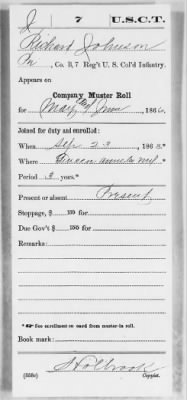 J 7 U.S.C.T.
Richard Johnson
Pvt, Co. B, 7 Reg't U. S. Col'd Infantry.
Appears on
Company Muster Roll
for May & June, 1866.
Joined for duty and enrolled:
When Sep. 23, 1863.*
Where Queen Anne's Md
Period 3 years.*
Present or absent Present
Stoppage, $ 100 for
Due Gov't $ 100 for
Remarks:
* See enrollment on card from muster-in roll.
Book mark:
Holbrook
(358c) Copyist.